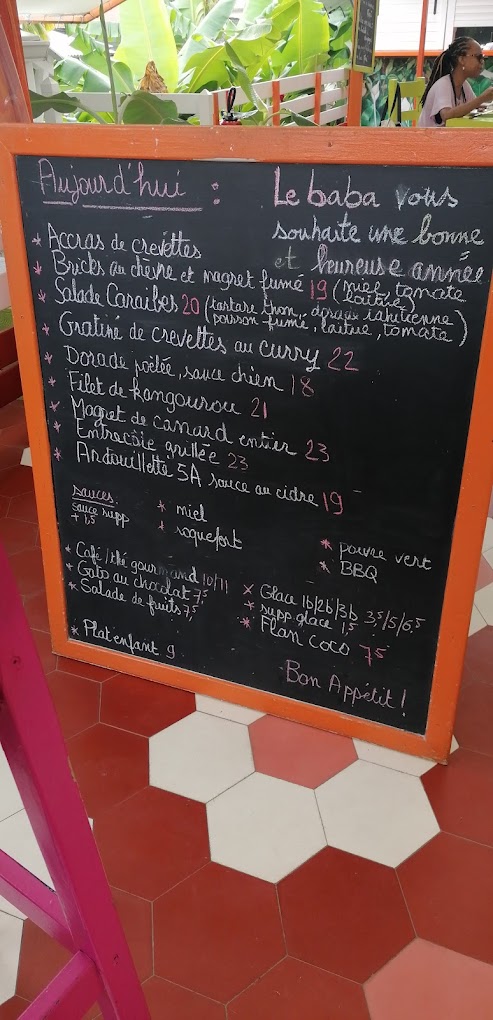 Aujourd'hui :
Le baba vous
souhaite une bonne
et heureuse année
* Accras de crevettes
* Bricks au chèvre et magret fumé 19 (miel, tomate
laitue)
* Salade Caraïbes 20 (tartare thon, dorade tahitienne
poisson fumé, laitue, tomate)
* Gratiné de crevettes au curry 22
* Dorade poêlée, sauce chien 18
* Filet de kangourou 21
* Magret de canard entier 23
* Entrecôte grillée 23
* Andouillette 5A sauce au cidre 19
sauces:
sauce supp
+ 1,5
* miel
* roquefort
* poivre vert
* BBQ
* Café/thé gourmand 10/11
* Gato au chocolat 7,5
* Salade de fruits 7,5
* Glace 1b/2b/3b 3,5/5/6,5
* supp glace 1,5
* Flan coco 7,5
* Plat enfant 9
Bon Appétit !